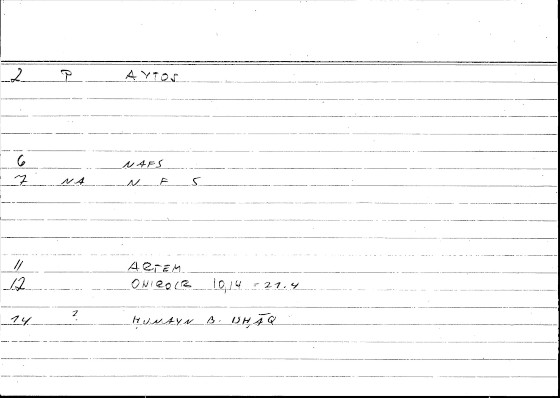 2 P AYTOS
6 NAFS
7 NA N F S
11 ARTEM.
12 ONIROCR 10,14 - 21.4
14 ? ḤUNAYN B. ISḤĀQ